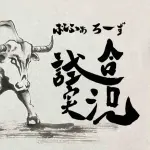 ばふぁろーず
試合
実況